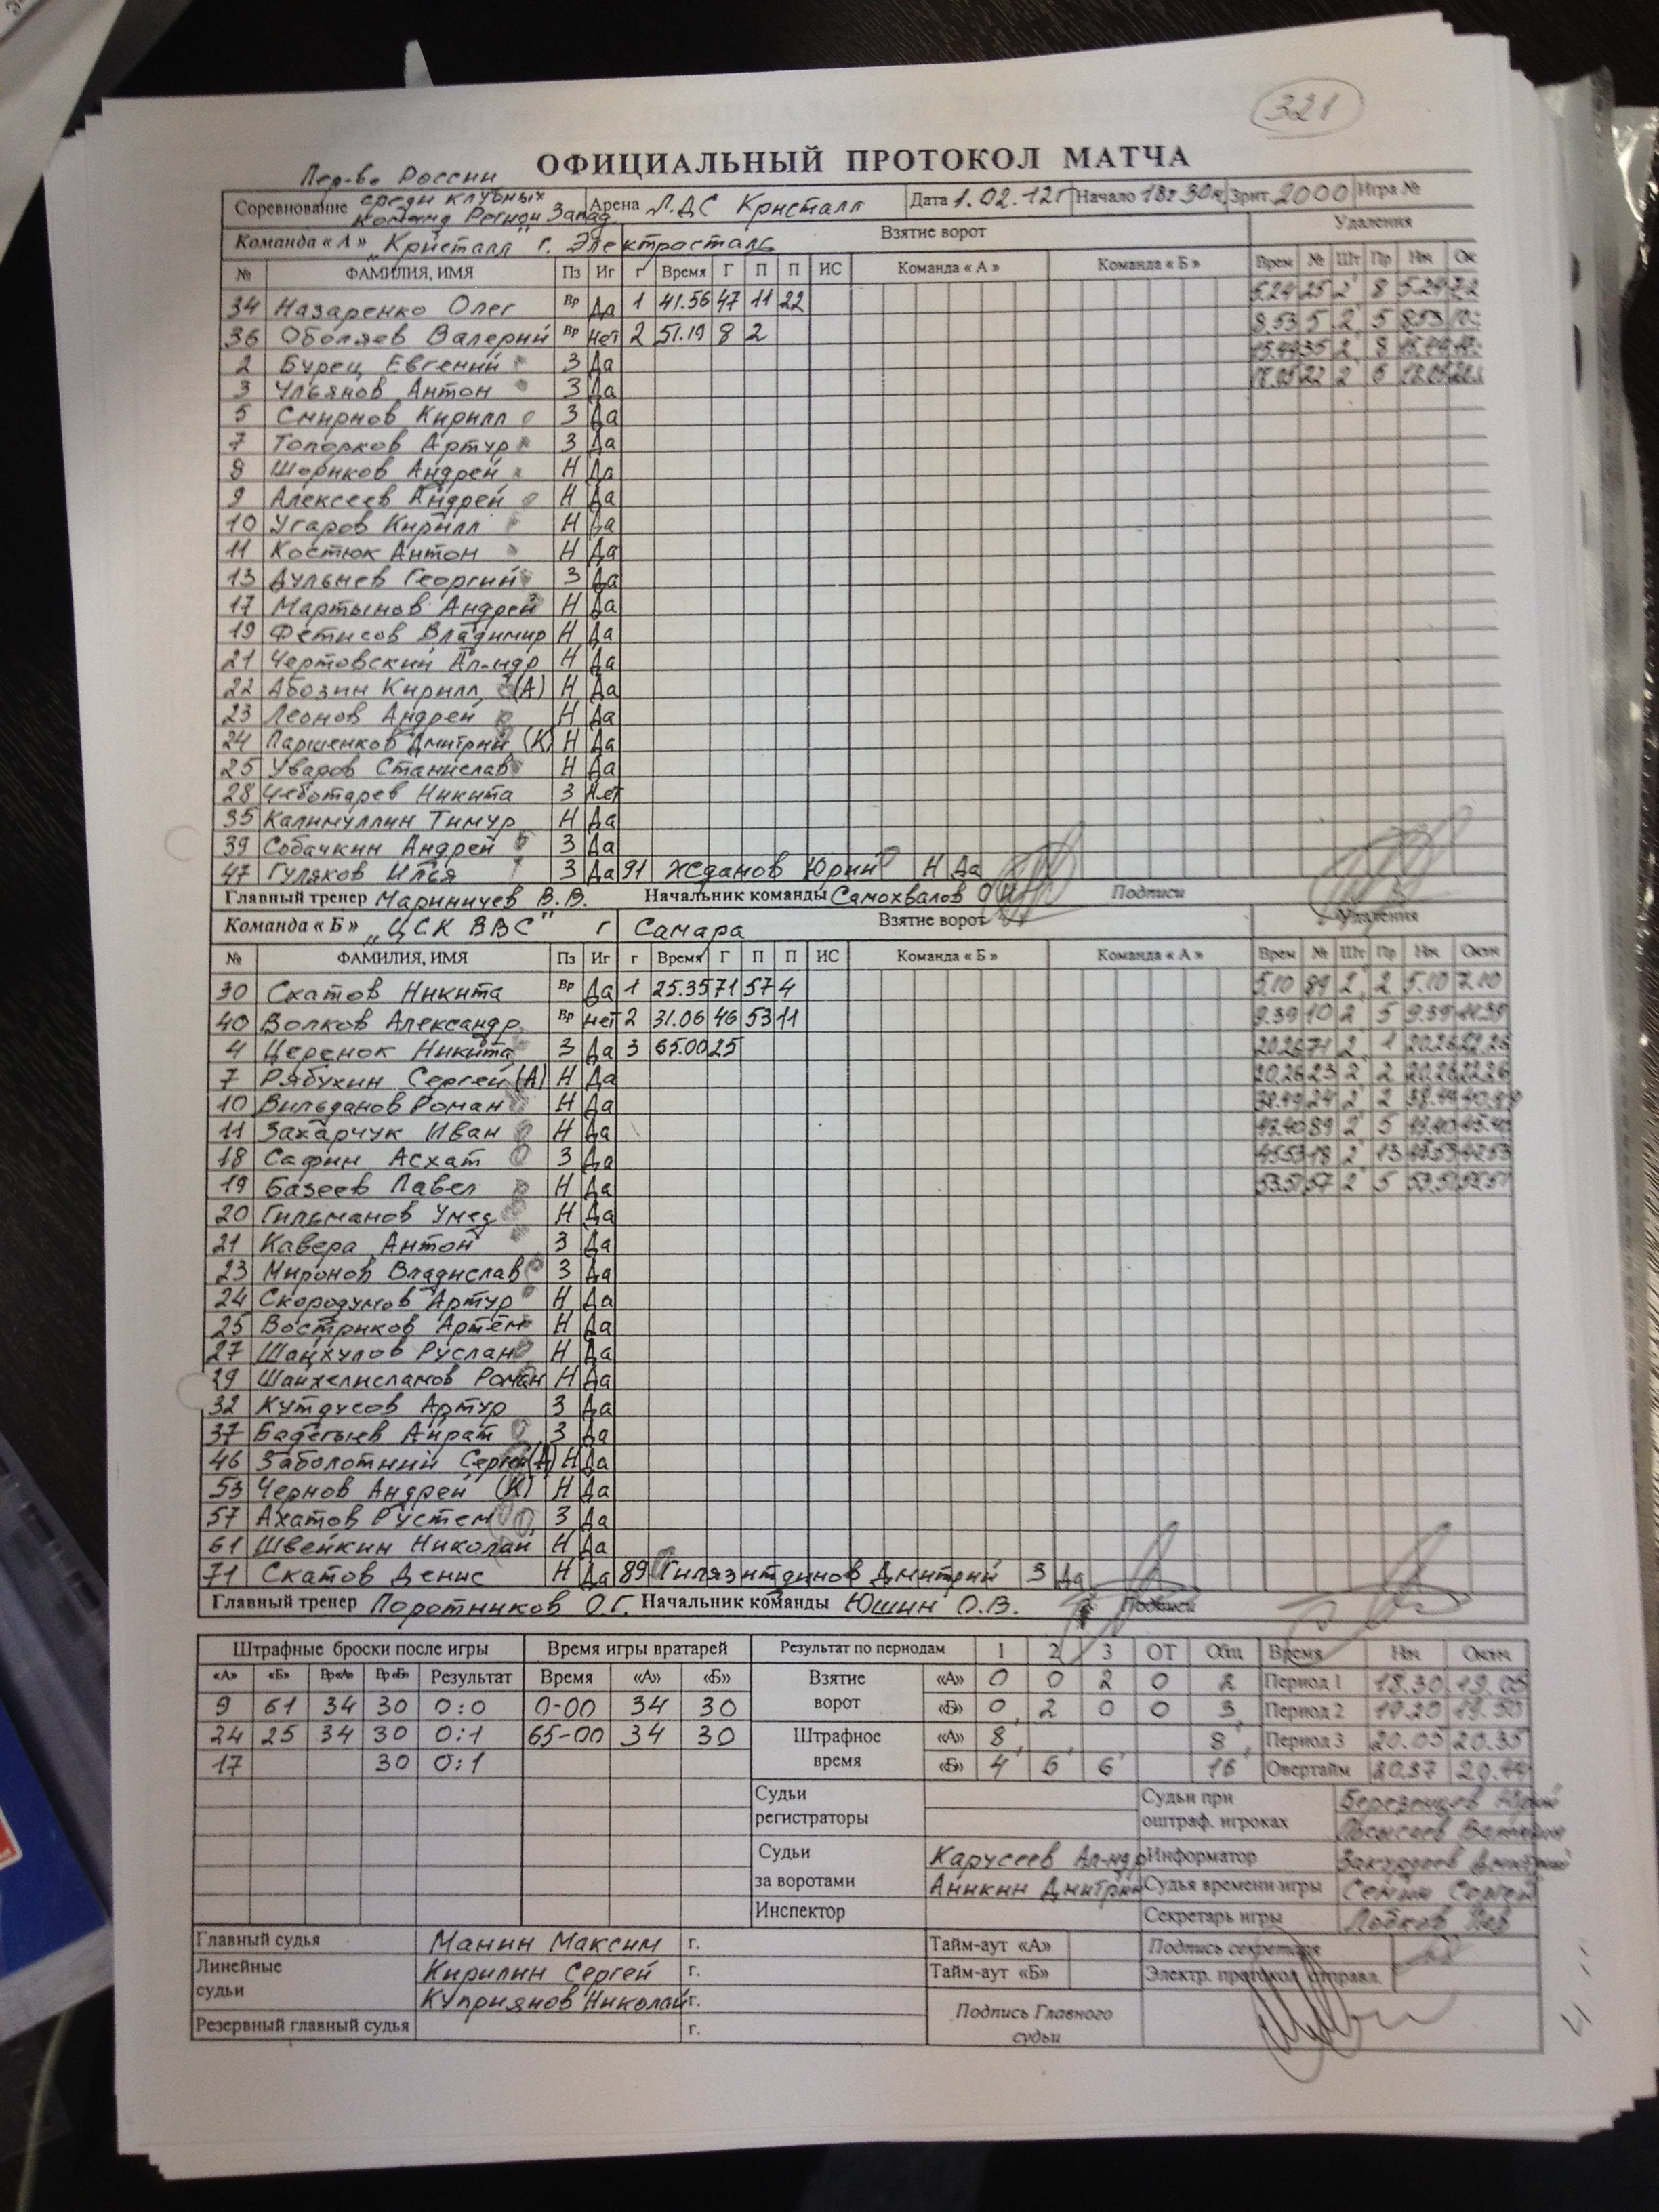 321
ОФИЦИАЛЬНЫЙ ПРОТОКОЛ МАТЧА
Пер-во России
Соревнование среди клубных команд Регион Запад Арена Л.ДС Кристалл Дата 1.02.12г Начало 18ч30м Зрит. 2000 Игра №
Команда « А » „Кристалл" г. Электросталь Взятие ворот Удаления
№ ФАМИЛИЯ, ИМЯ Пз Иг г Время Г П П ИС Команда « А » Команда « Б » Врем № Шт Пр Нач Ок
34 Назаренко Олег Вр Да 1 41.56 47 11 22 5.24 25 2' 8 5.24
36 Оболяев Валерий Вр Нет 2 51.19 8 2 8.53 5 2' 5 8.53
2 Бурец Евгений З Да 35 2' 8
3 Ульянов Антон З Да 22 2'
5 Смирнов Кирилл З Да
7 Топорков Артур З Да
8 Шориков Андрей Н Да
9 Алексеев Андрей Н Да
10 Угаров Кирилл Н Да
11 Костюк Антон Н Да
13 Дульнев Георгий З Да
17 Мартынов Андрей Н Да
19 Фетисов Владимир Н Да
21 Чертовский Ал-ндр Н Да
22 Абозин Кирилл (А) Н Да
23 Леонов Андрей Н Да
24 Паршенков Дмитрий (К) Н Да
25 Уваров Станислав Н Да
28 Чеботарев Никита З Нет
35 Калимуллин Тимур Н Да
39 Собачкин Андрей З Да
47 Гуляков Илья З Да 91 Жданов Юрий Н Да
Главный тренер Мариничев В.В. Начальник команды Самохвалов Подписи
Команда « Б » „ЦСК ВВС" г Самара Взятие ворот Удаления
№ ФАМИЛИЯ, ИМЯ Пз Иг г Время Г П П ИС Команда « Б » Команда « А » Врем № Шт Пр Нач Окон
30 Скатов Никита Вр Да 1 25.35 71 57 4 5.10 89 2' 2 5.10 7.10
40 Волков Александр Вр нет 2 31.06 46 53 11 9.39 10 2' 5 9.39 11.39
4 Церенок Никита З Да 3 65.00 25 20.26 71 2' 1 20.26 22.26
7 Рябухин Сергей (А) Н Да 20.26 23 2' 2 20.26 22.26
10 Вильданов Роман Н Да 38.49 24 2' 2 38.49 40.49
11 Захарчук Иван Н Да 89 2' 5
18 Сафин Асхат З Да 45.53 18 2' 13 45.53 47.53
19 Базеев Павел Н Да 53.51 57 2' 5 53.51 55.51
20 Гильманов Умед Н Да
21 Кавера Антон З Да
23 Миронов Владислав З Да
24 Скородумов Артур Н Да
25 Востриков Артём Н Да
27 Шайхулов Руслан Н Да
29 Шайхелисламов Роман Н Да
32 Кутдусов Артур З Да
37 Бадегыев Айрат З Да
46 Заболотний Сергей (А) Н Да
53 Чернов Андрей (К) Н Да
57 Ахатов Рустем З Да
61 Швейкин Николай Н Да
71 Скатов Денис Н Да 89 Гилязитдинов Дмитрий З Да
Главный тренер Поротников О.Г. Начальник команды Юшин О.В. Подписи
Штрафные броски после игры Время игры вратарей Результат по периодам 1 2 3 ОТ Общ Время Нач Окон
«А» «Б» Вр«А» Вр«Б» Результат Время «А» «Б» Взятие ворот «А» 0 0 2 0 2 Период 1 18.30 19.05
9 61 34 30 0:0 0-00 34 30 «Б» 0 2 0 0 3 Период 2 19.20 19.50
24 25 34 30 0:1 65-00 34 30 Штрафное время «А» 8' 8' Период 3 20.05 20.35
17 30 0:1 «Б» 4' 6' 6' 16' Овертайм 20.37 20.44
Судьи регистраторы Судьи при оштраф. игроках
Судьи за воротами Карусеев Ал-ндр Информатор
Аникин Дмитрий Судья времени игры Семин Сергей
Инспектор Секретарь игры Лобков Лев
Главный судья Манин Максим г. Тайм-аут «А» Подпись секретаря
Линейные судьи Кирилин Сергей г. Тайм-аут «Б» Электр. протокол отправл.
Куприянов Николай г. Подпись Главного судьи
Резервный главный судья г.